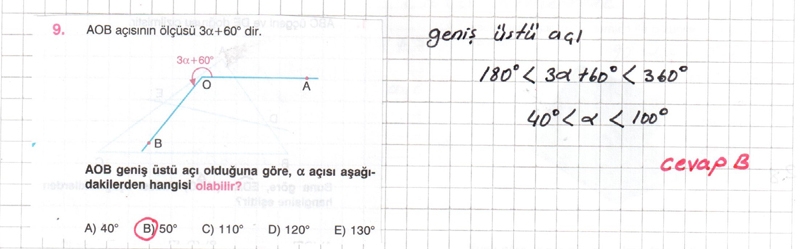 9. AOB açısının ölçüsü 3α+60° dir.
3α+60°
O
A
B
AOB geniş üstü açı olduğuna göre, α açısı aşağı-
dakilerden hangisi olabilir?
A) 40° B) 50° C) 110° D) 120° E) 130°
geniş üstü açı
180° < 3α+60° < 360°
40° < α < 100°
cevap B